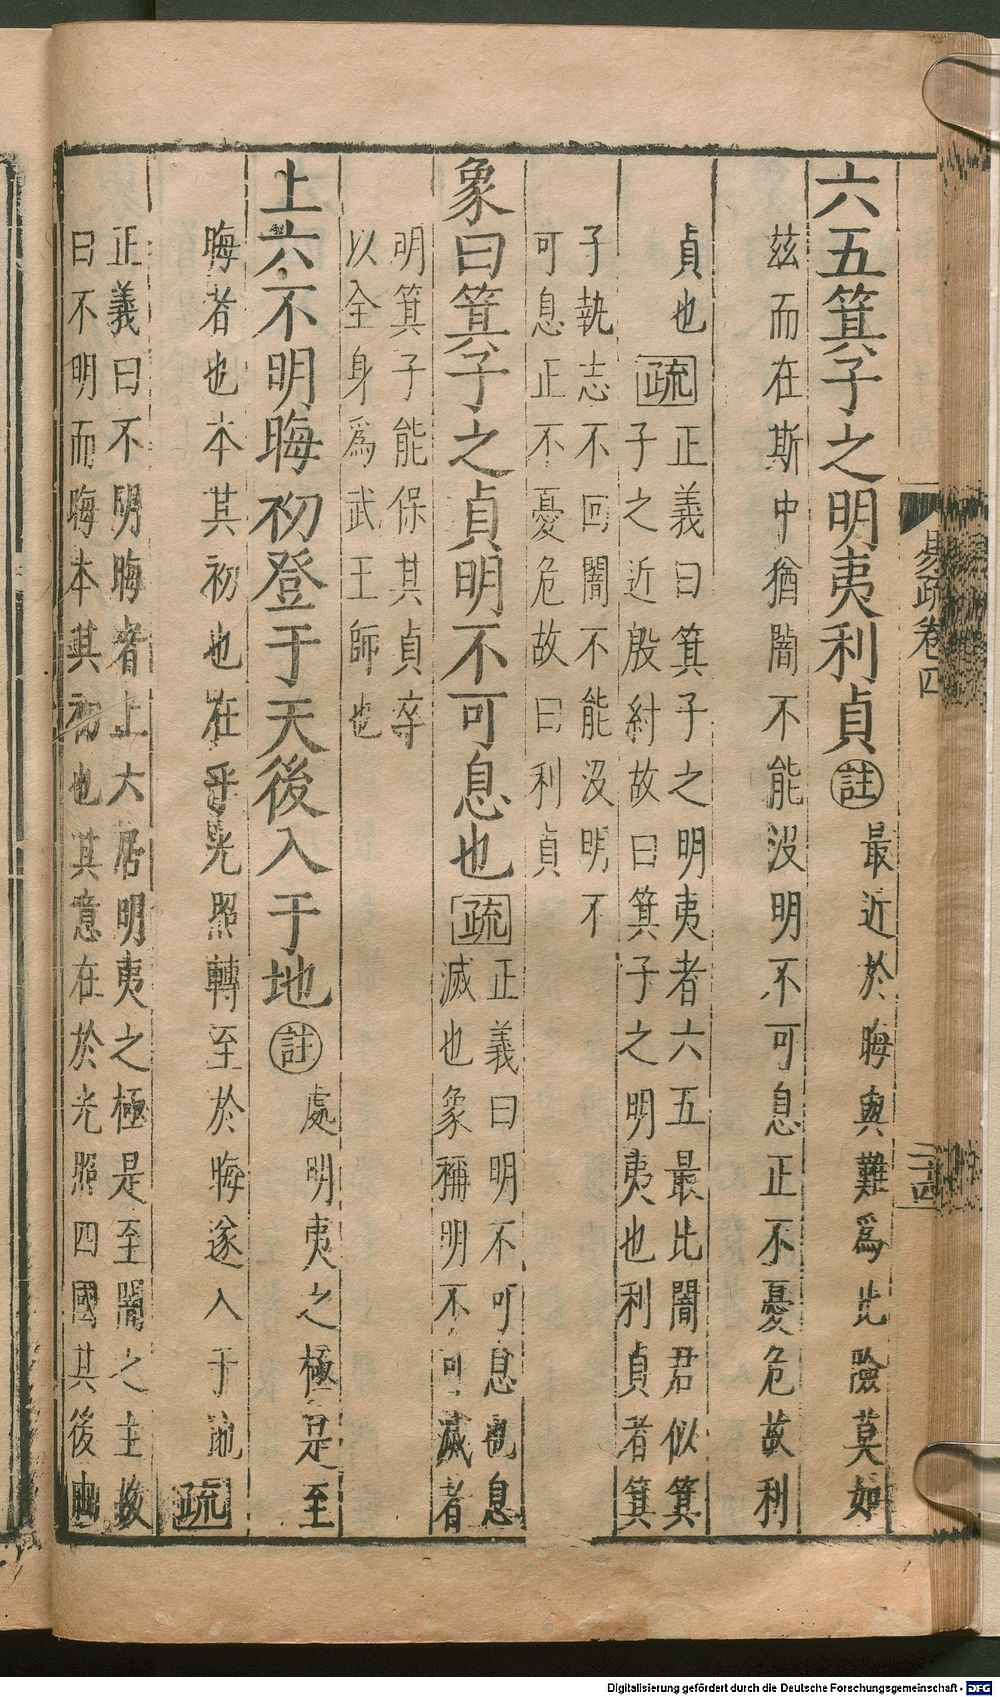 易疏卷四
二十四
六五箕子之明夷利貞註最近於晦與難爲比險莫如
茲而在斯中猶闇不能沒明不可息正不憂危故利
貞也疏正義曰箕子之明夷者六五最比闇君似箕
子之近殷紂故曰箕子之明夷也利貞者箕
子執志不回闇不能沒明不
可息正不憂危故曰利貞
象曰箕子之貞明不可息也疏正義曰明不可息也息
滅也象稱明不可滅者
明箕子能保其貞卒
以全身爲武王師也
上六不明晦初登于天後入于地註處明夷之極是至
晦者也本其初也在乎光照轉至於晦遂入于地疏
正義曰不明晦者上六居明夷之極是至闇之主故
曰不明而晦本其初也其意在於光照四國其後由
Digitalisierung gefördert durch die Deutsche Forschungsgemeinschaft - DFG